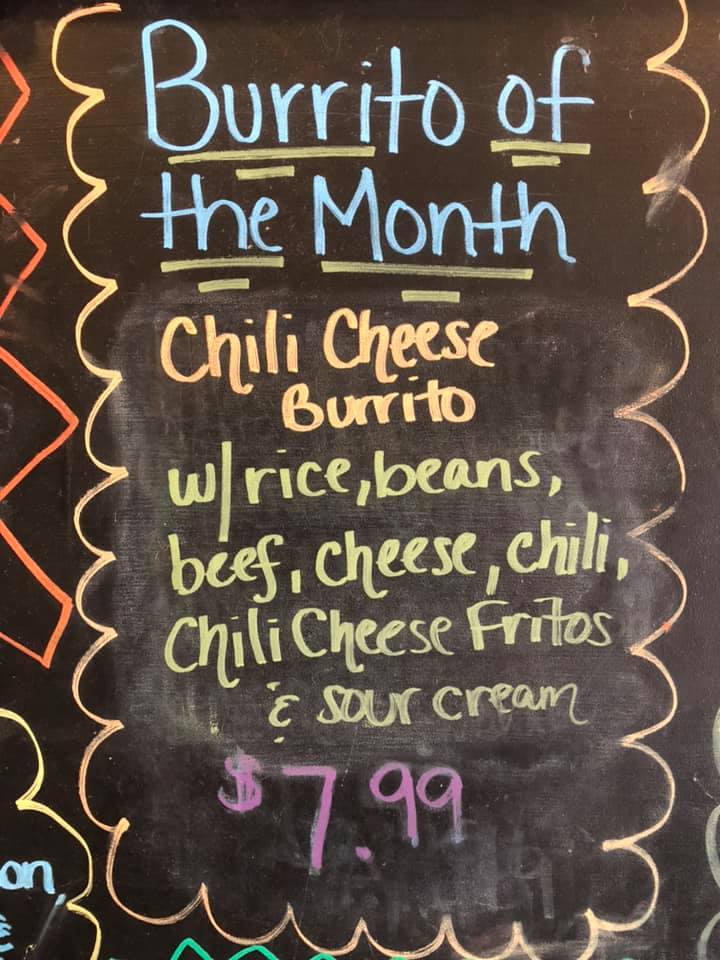 Burrito of
the Month
Chili Cheese
Burrito
w/rice, beans,
beef, cheese, chili,
Chili Cheese Fritos
& sour cream
$7.99
on